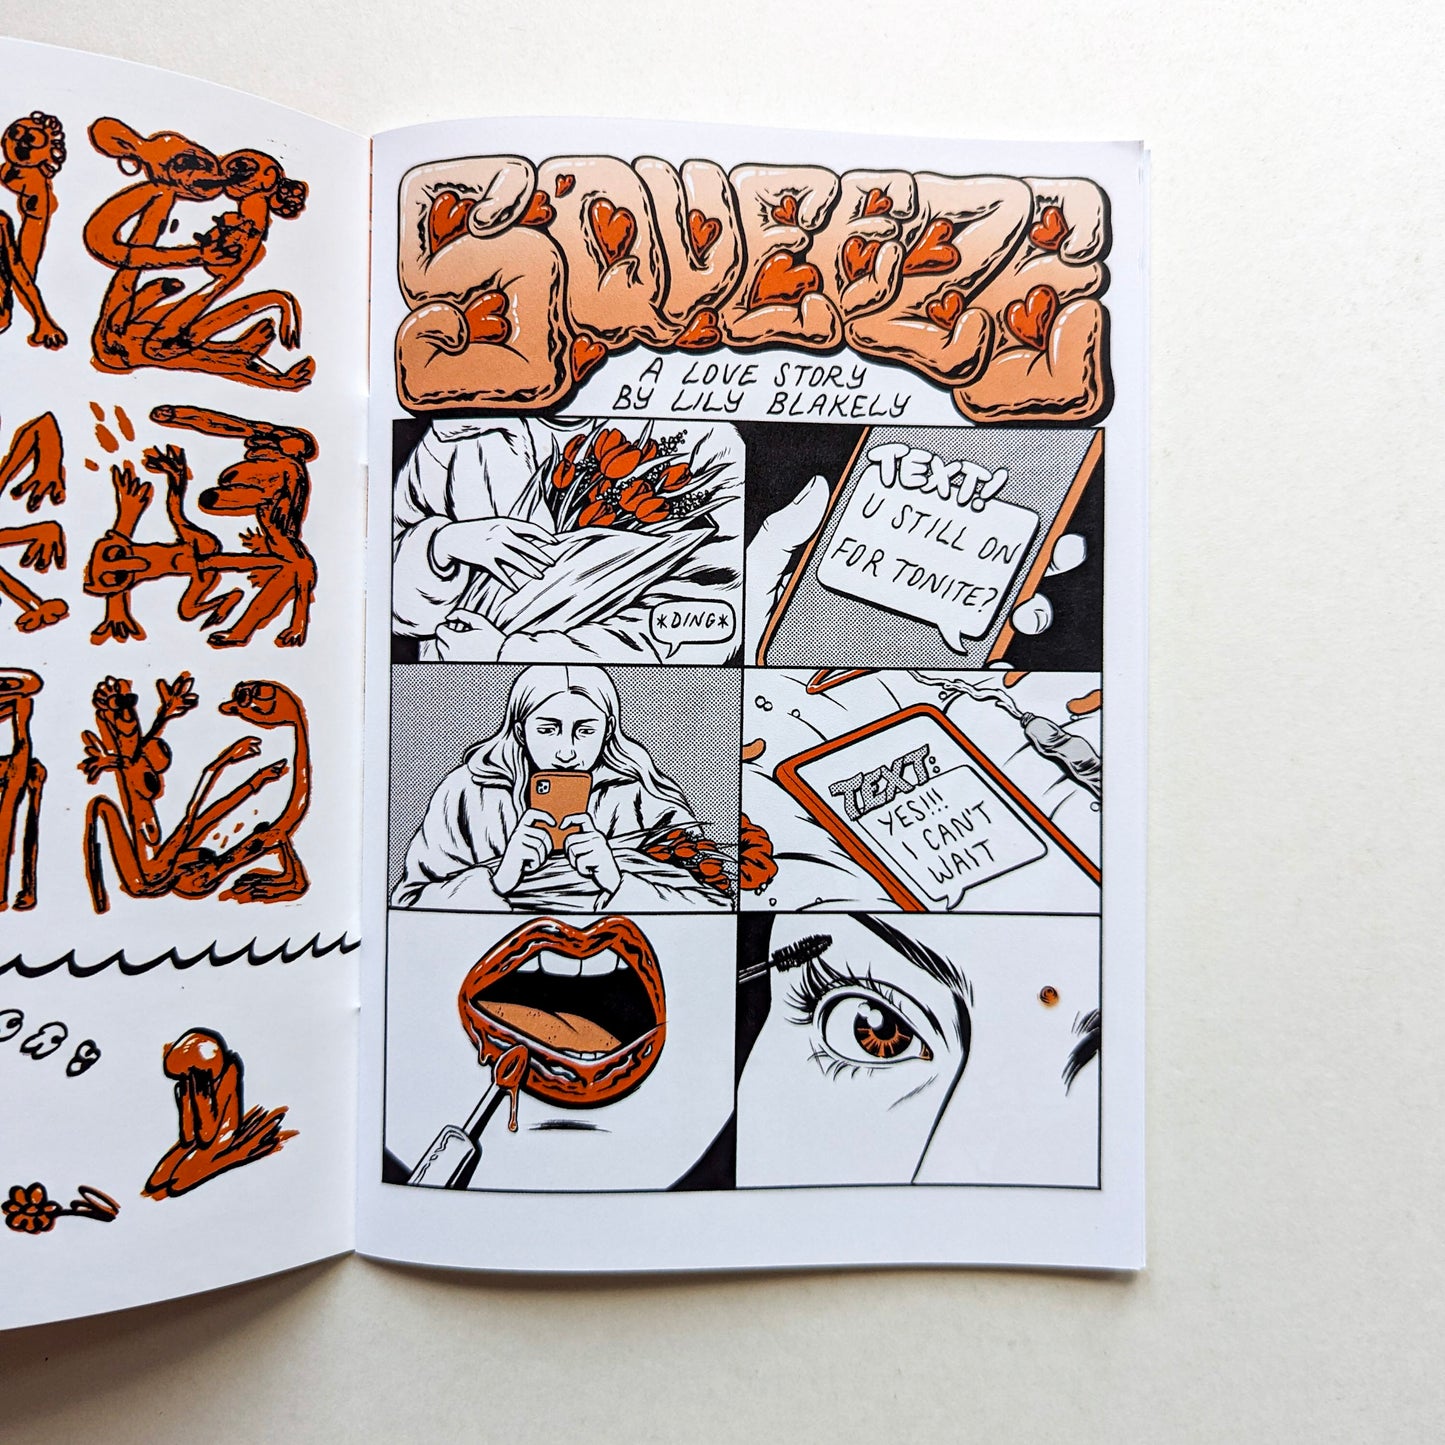 SQUEEZE
A LOVE STORY
BY LILY BLAKELY
*DING*
TEXT!
U STILL ON
FOR TONITE?
TEXT:
YES!!!
I CAN'T
WAIT